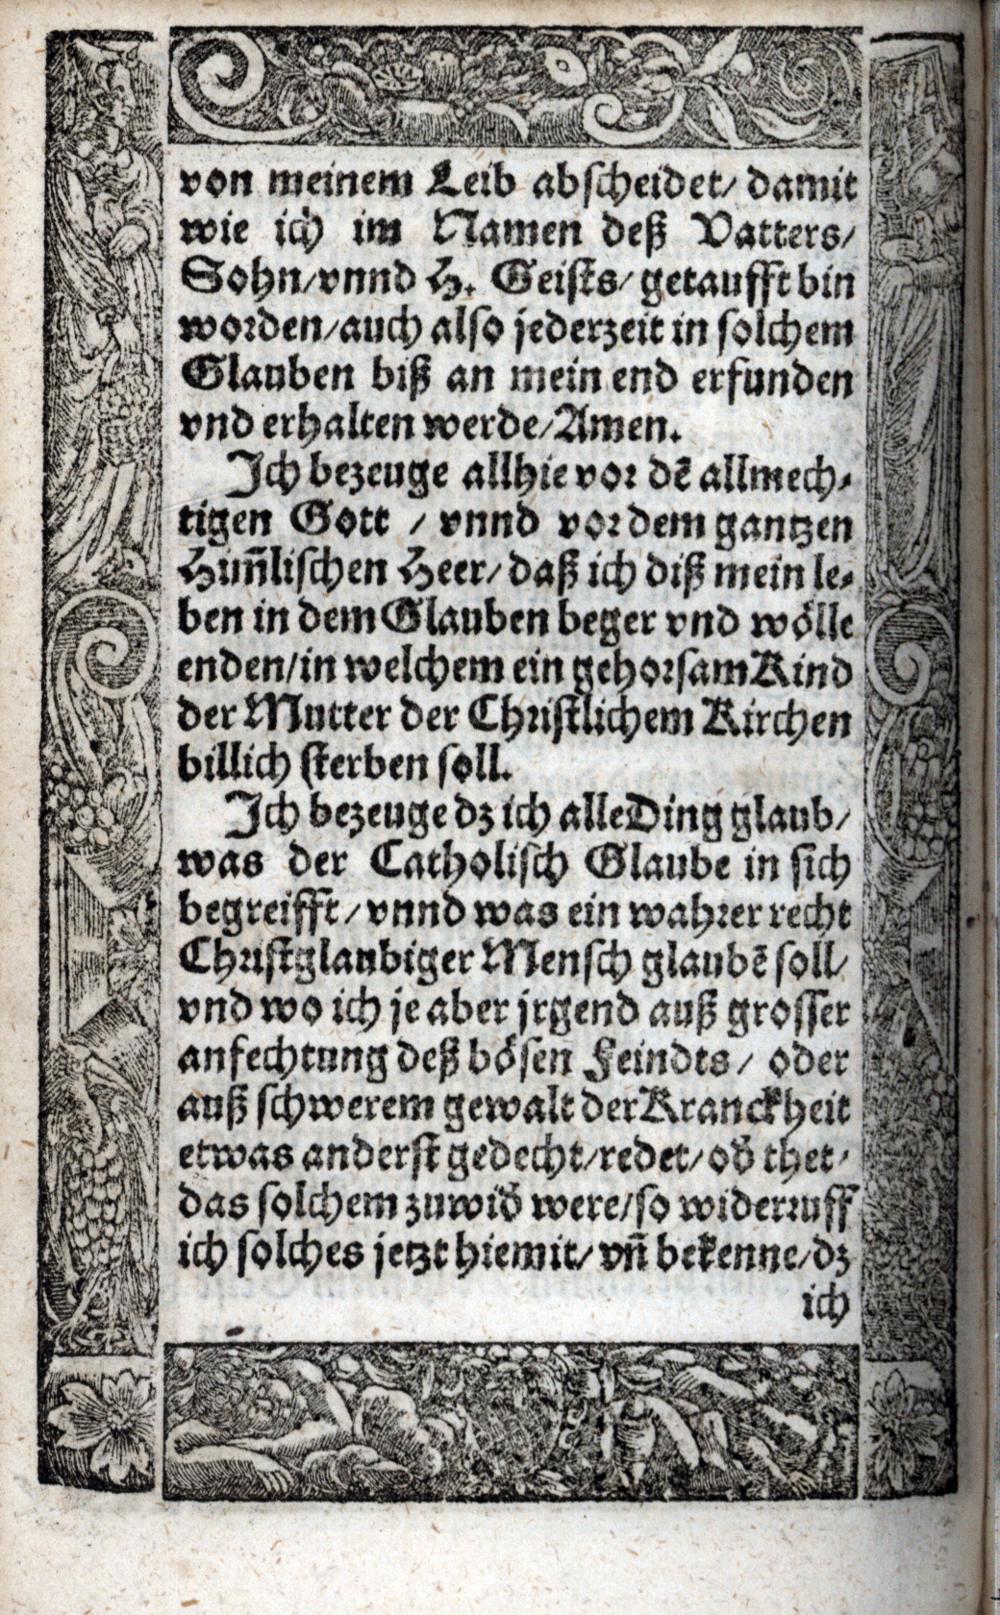 von meinem Leib abscheidet/ damit
wie ich im Namen deß Vatters/
Sohn/vnnd H. Geists/ getaufft bin
worden/auch also jederzeit in solchem
Glauben biß an mein end erfunden
vnd erhalten werde/Amen.
Ich bezeuge allhie vor dẽ allmech-
tigen Gott / vnnd vor dem gantzen
Him̃lischen Heer/ daß ich diß mein le-
ben in dem Glauben beger vnd wölle
enden/in welchem ein gehorsam Kind
der Mutter der Christlichem Kirchen
billich sterben soll.
Ich bezeuge dz ich alle Ding glaub/
was der Catholisch Glaube in sich
begreifft/vnnd was ein wahrer recht
Christglaubiger Mensch glaubẽ soll/
vnd wo ich je aber jrgend auß grosser
anfechtung deß bösen Feindts/ oder
auß schwerem gewalt der Kranckheit
etwas anderst gedecht/redet/od̕ thet/
das solchem zuwid̕ were/so widerruff
ich solches jetzt hiemit/ vñ bekenne/dz
ich